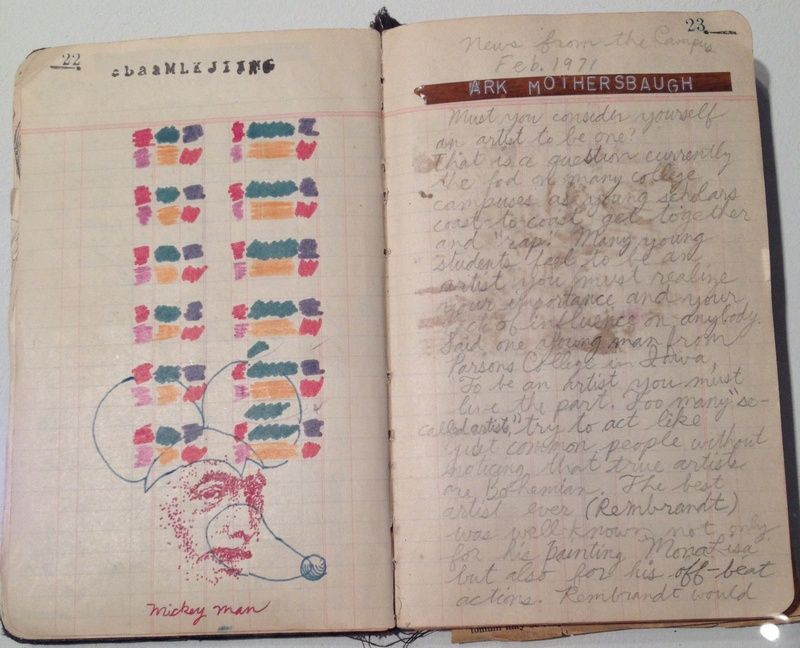 22
Mickey man
23
News from the Campus
Feb. 1971
ARK MOTHERSBAUGH
Must you consider yourself
an artist to be one?
That is a question currently
the fad on many college
campuses as young scholars
coast to coast get together
and "rap." Many young
students feel to be an
artist you must realize
your importance and your
lack of influence on anybody.
Said one young man from
Parsons College in Iowa,
To be an artist you must
live the part. Too many "so-
called artists," try to act like
just common people without
noticing that true artists
are Bohemian. The best
artist ever (Rembrandt)
was well-known not only
for his painting Mona Lisa
but also for his off-beat
actions. Rembrandt would